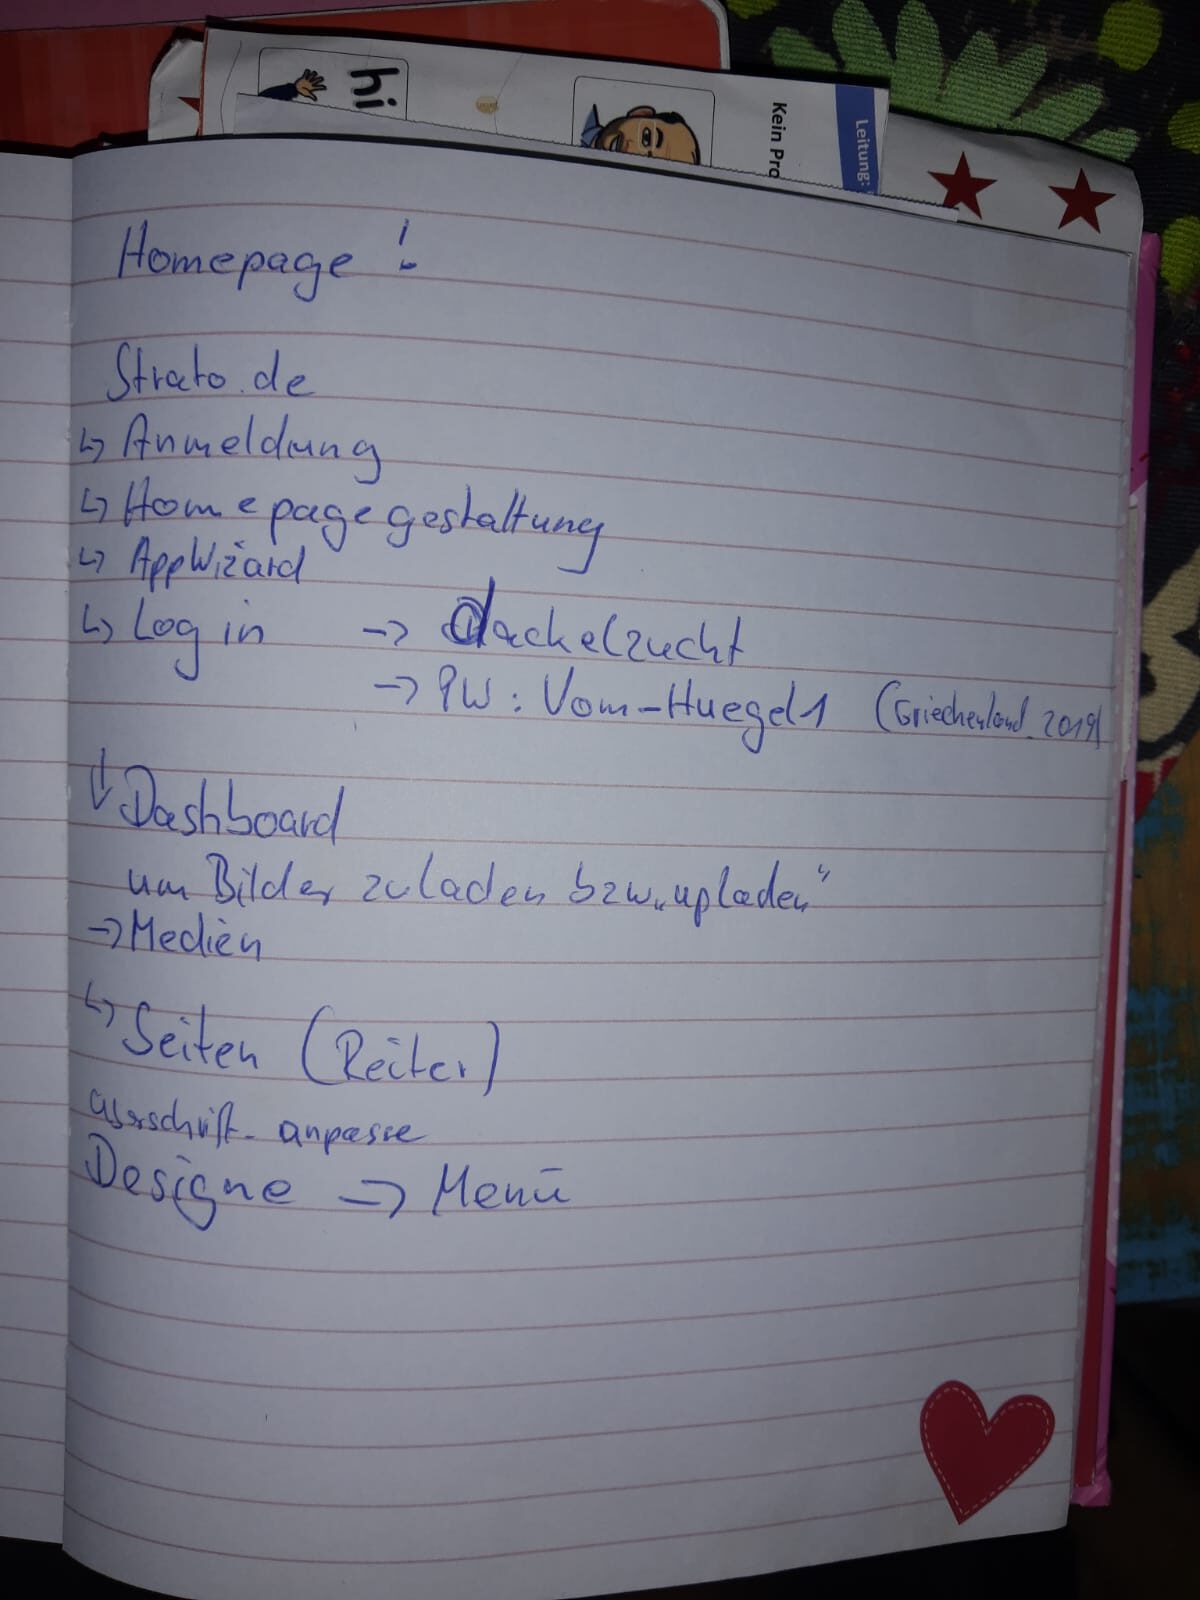 hi
Kein Pro
Leitung:
Homepage !
Strato.de
↳ Anmeldung
↳ Homepagegestaltung
↳ AppWizard
↳ Log in → dackelzucht
→ PW: Vom-Huegel1 (Griechenland_2019)
↓ Dashboard
um Bilder zu laden bzw. „upladen“
→ Medien
↳ Seiten (Reiter)
anpasse
Designe → Menü